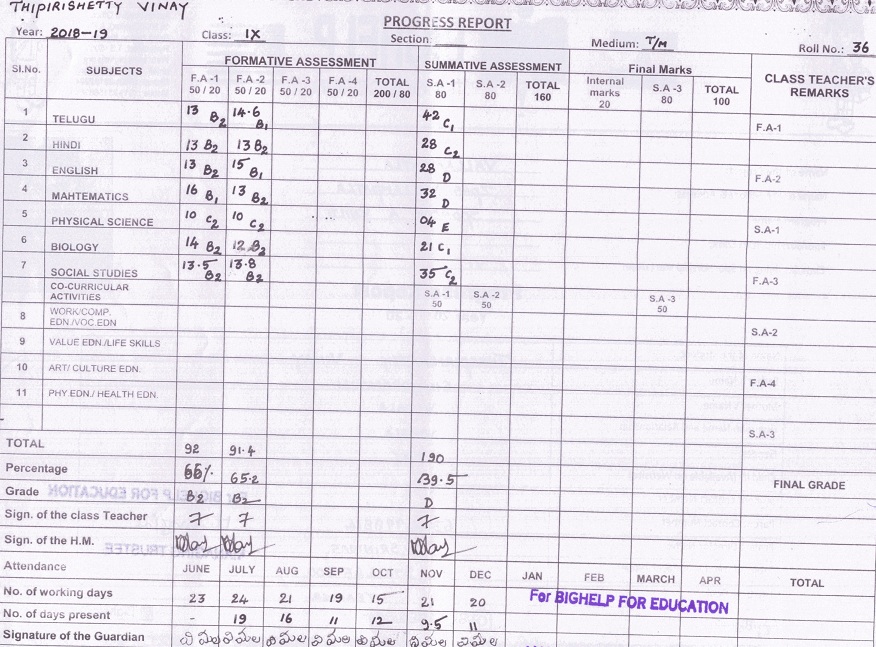 THIPIRISHETTY VINAY
PROGRESS REPORT
Year: 2018-19 Class: IX Section: Medium: T/M Roll No.: 36
Sl.No. SUBJECTS FORMATIVE ASSESSMENT SUMMATIVE ASSESSMENT Final Marks CLASS TEACHER'S REMARKS
F.A -1 50 / 20 F.A -2 50 / 20 F.A -3 50 / 20 F.A -4 50 / 20 TOTAL 200 / 80 S.A -1 80 S.A -2 80 TOTAL 160 Internal marks 20 S.A -3 80 TOTAL 100
1 TELUGU 13 B2 14.6 B1 42 C1 F.A-1
2 HINDI 13 B2 13 B2 28 C2
3 ENGLISH 13 B2 15 B1 28 D F.A-2
4 MAHTEMATICS 16 B1 13 B2 32 D
5 PHYSICAL SCIENCE 10 C2 10 C2 04 E S.A-1
6 BIOLOGY 14 B2 12 B2 21 C1
7 SOCIAL STUDIES 13.5 B2 13.8 B2 35 C2 F.A-3
CO-CURRICULAR ACTIVITIES S.A -1 50 S.A -2 50 S.A -3 50
8 WORK/COMP. EDN./VOC.EDN S.A-2
9 VALUE EDN./LIFE SKILLS
10 ART/ CULTURE EDN. F.A-4
11 PHY.EDN./ HEALTH EDN.
S.A-3
TOTAL 92 91.4 190
Percentage 66% 65.2 39.5 FINAL GRADE
Grade B2 B2 D
Sign. of the class Teacher
Sign. of the H.M.
Attendance JUNE JULY AUG SEP OCT NOV DEC JAN FEB MARCH APR TOTAL
No. of working days 23 24 21 19 15 21 20
For BIGHELP FOR EDUCATION
No. of days present - 19 16 11 12 9.5 11
Signature of the Guardian విమల విమల విమల విమల విమల విమల విమల